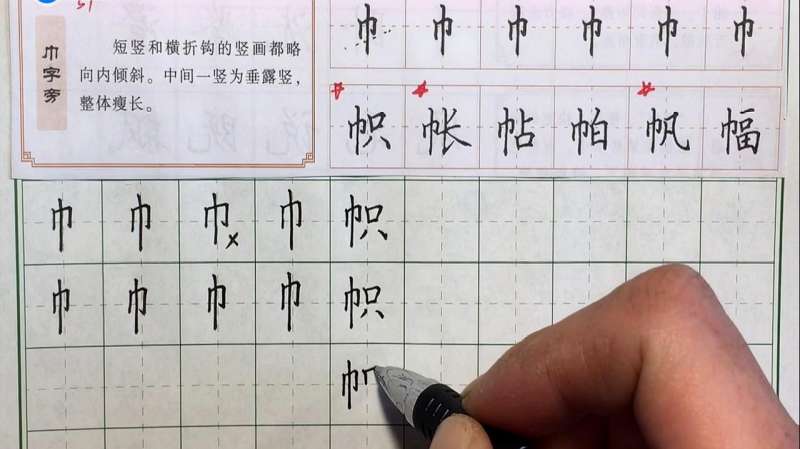 51
巾字旁
短竖和横折钩的竖画都略
向内倾斜。中间一竖为垂露竖，
整体瘦长。
巾 巾 巾 巾 巾 巾
帜 帐 帖 帕 帆 幅
巾 巾 巾 巾 帜
巾 巾 巾 巾 帜